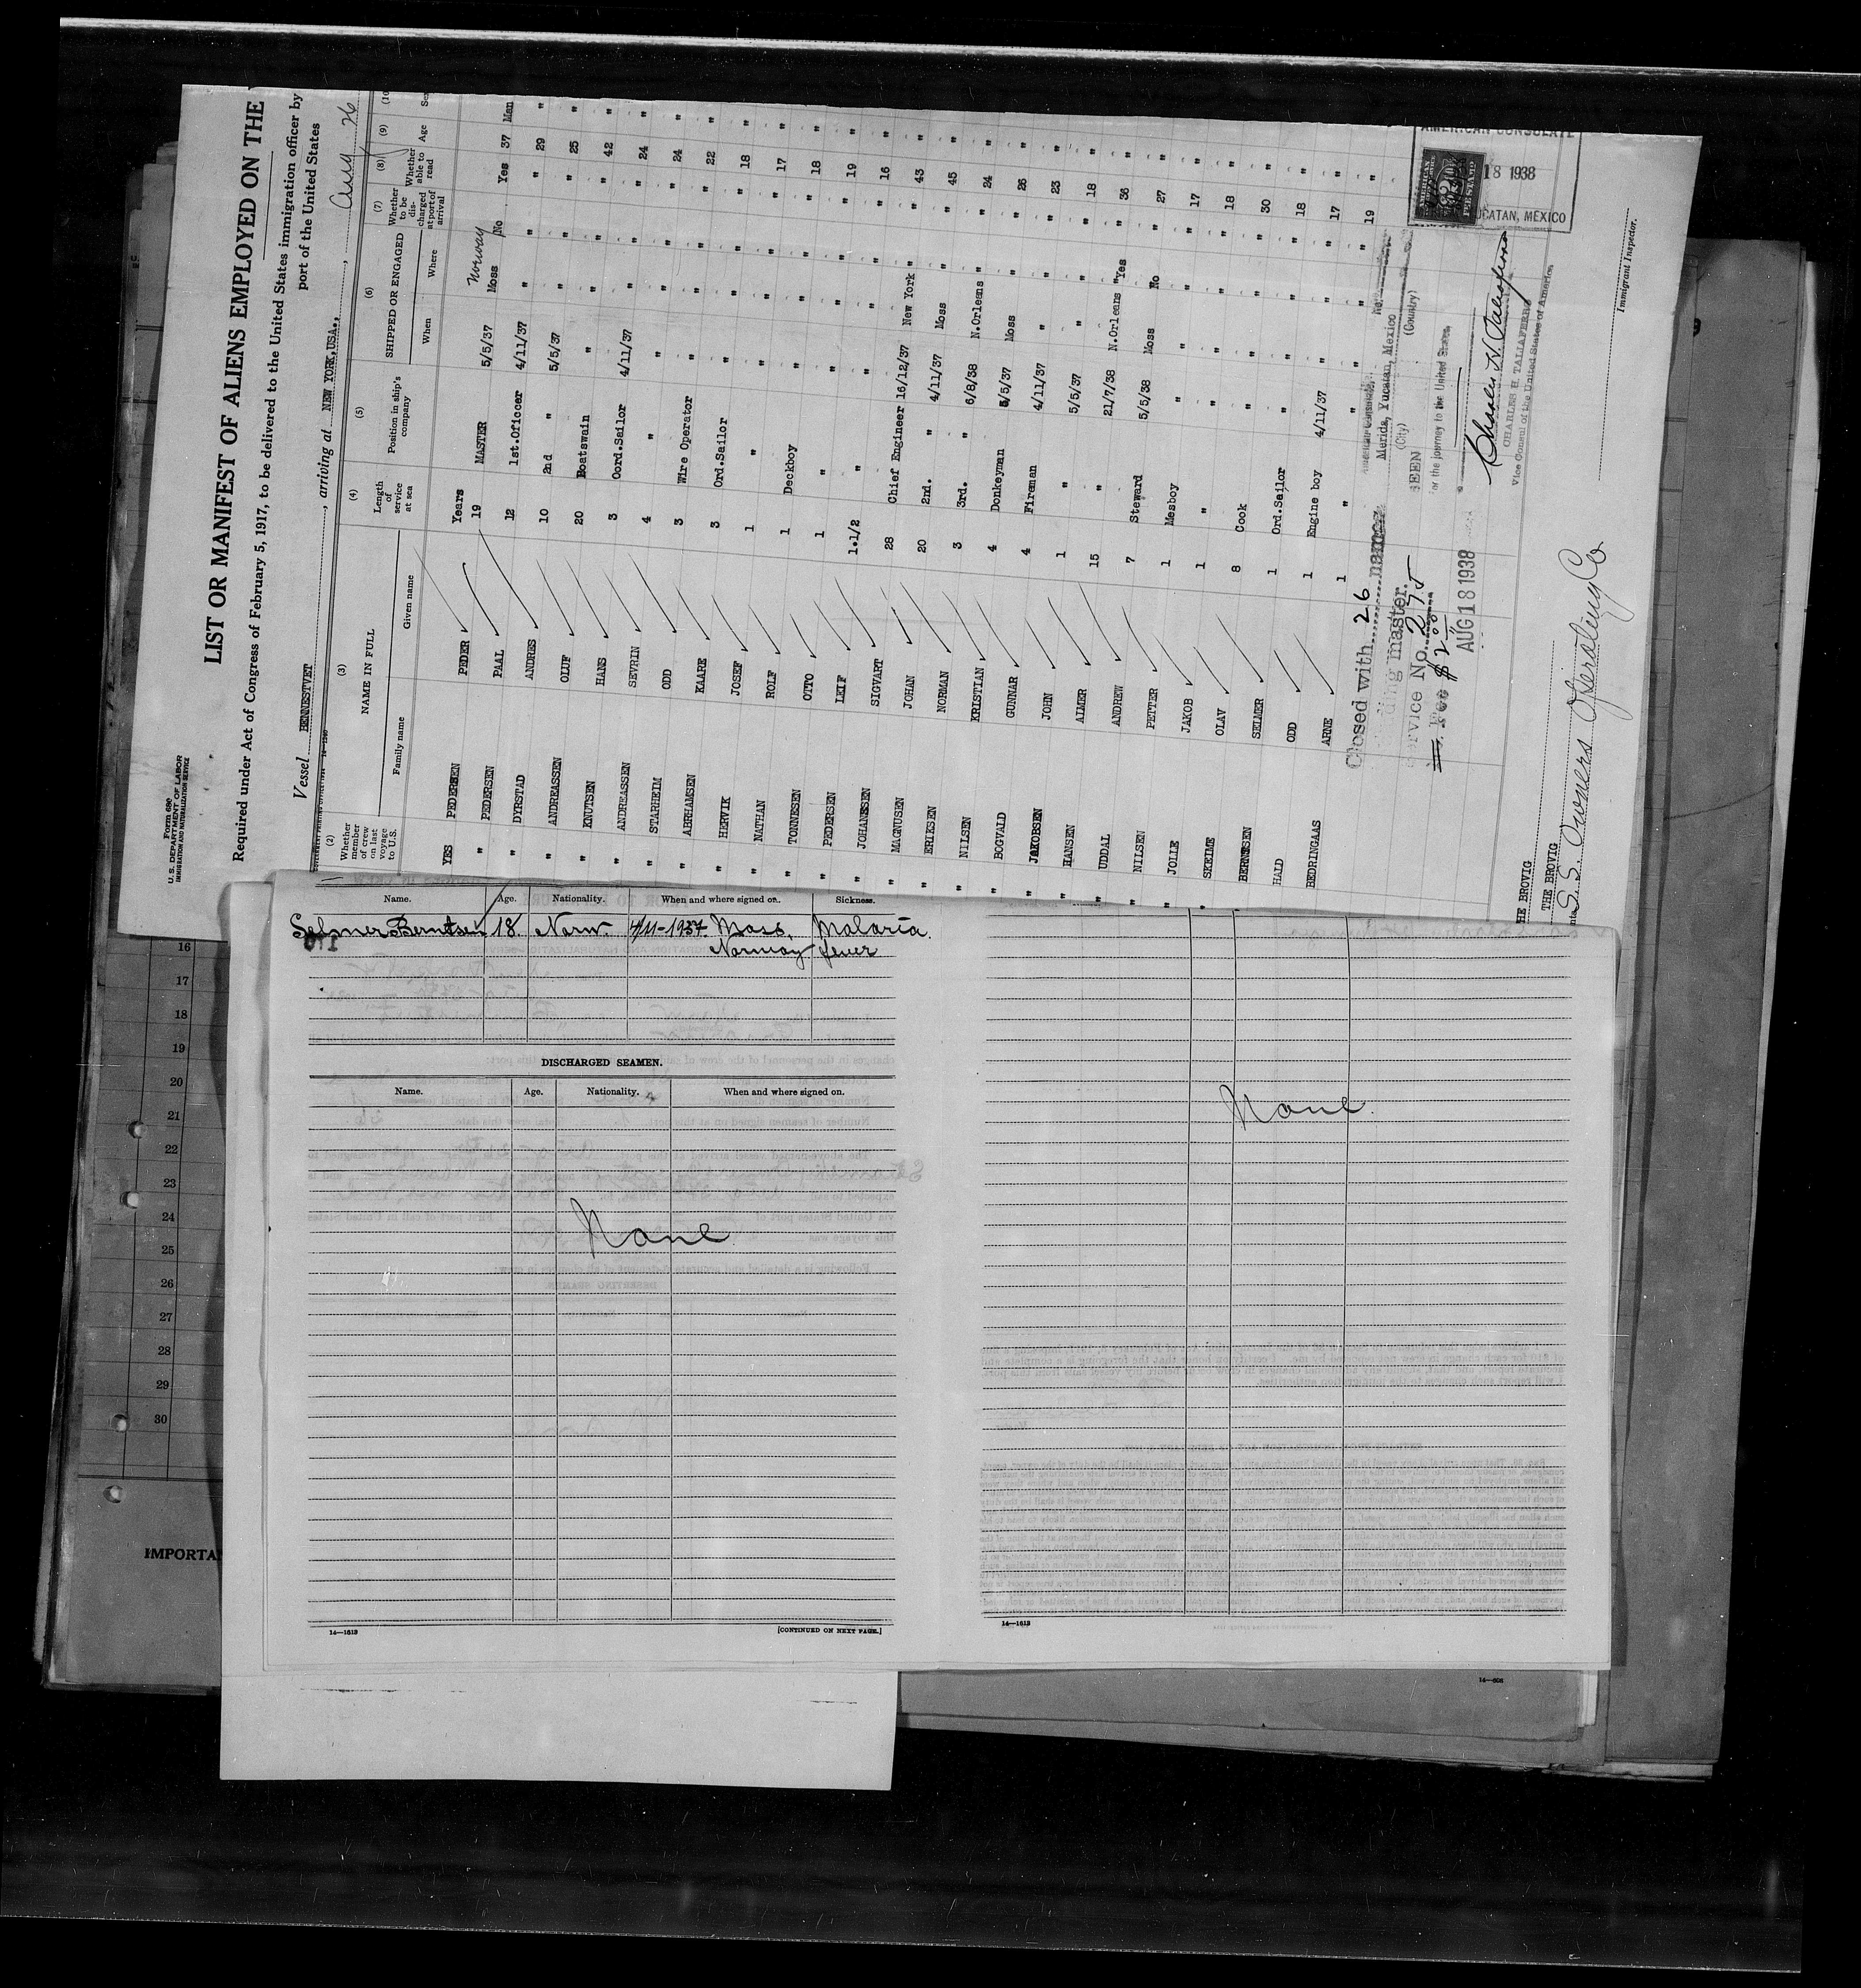 Form 680
U. S. DEPARTMENT OF LABOR
IMMIGRATION AND NATURALIZATION SERVICE
LIST OR MANIFEST OF ALIENS EMPLOYED ON THE
Required under Act of Congress of February 5, 1917, to be delivered to the United States immigration officer by
port of the United States
Vessel BENNESTVET, arriving at NEW YORK,USA., Aug 26
(2) (3) (4) (5) (6) (7) (8) (9) (10
Whether member of crew on last voyage to U.S. NAME IN FULL Length of service at sea Position in ship's company SHIPPED OR ENGAGED Whether to be discharged at port of arrival Whether able to read Age Se
Family name Given name When Where
Years Norway
YES PEDERSEN PEDER 19 MASTER 5/5/37 Moss No Yes 37 Man
" PEDERSEN PAAL 12 1st.Oficcer 4/11/37 " " " 29 "
" DYRSTAD ANDRES 10 2nd " 5/5/37 " " " 25 "
" ANDREASSEN OLUF 20 Boatswain " " " " 42 "
" KNUTSEN HANS 3 Oord.Sailor 4/11/37 " " " 24 "
" ANDREASSEN SEVRIN 4 " " " " " 24 "
" STARHEIM ODD 3 Wire Operator " " " " 22 "
" ABRHAMSEN KAARE 3 Ord.Sailor " " " " 18 "
" HERVIK JOSEF 1 " " " " " 17 "
" NATHAN ROLF 1 Deckboy " " " " 18 "
" TONNESEN OTTO 1 " " " " " 19 "
" PEDERSEN LEIF 1.1/2 " " " " " 16 "
" JOHANSSEN SIGVART 28 Chief Engineer 16/12/37 New York " " 43 "
" MAGNUSEN JOHAN 20 2nd. " 4/11/37 Moss " " 45 "
" ERIKSEN NORMAN 3 3rd. " 6/8/38 N.Orleans " " 24 "
" NILSEN KRISTIAN 4 Donkeyman 5/5/37 Moss " " 26 "
" BOGVALD GUNNAR 4 Fireman 4/11/37 " " " 23 "
" JAKOBSEN JOHN 1 " 5/5/37 " " " 18 "
" HANSEN AIMER 15 " 21/7/38 N.Orleans Yes " 36 "
" UDDAL ANDREW 7 Steward 5/5/38 Moss No " 27 "
" NILSEN PETTER 1 Messboy " " " " 17 "
" JOLLE JAKOB 1 " " " " " 18 "
" SKEIME OLAV 8 Cook " " " " 30 "
" BERNTSEN SELMER 1 Ord.Sailor " " " " 18 "
HALD ODD 1 Engine boy 4/11/37 " " " 17 "
BEDRINGAAS ARNE 1 " " " " " 19 "
Closed with 26 names
ding master.
Service No. 275
Fee $ 2.00
AUG 18 1938
Merida, Yucatan, Mexico
(City) (Country)
SEEN
For the journey to the United States.
Charles H. Taliaferro
CHARLES H. TALIAFERRO
Vice Consul of the United States of America
AMERICAN CONSULATE
18 1938
YUCATAN, MEXICO
Immigrant Inspector.
THE BROVIG
THE BROVIG
S.S. Owners Operating Co
Name. Age. Nationality. When and where signed on. Sickness.
Selmer Berntsen 18 Norw. 4/11-1937 Moss, Malaria
Norway fever
DISCHARGED SEAMEN.
Name. Age. Nationality. When and where signed on.
None
14—1613
[CONTINUED ON NEXT PAGE.]
None.
14—1613
16
17
18
19
20
21
22
23
24
25
26
27
28
29
30
IMPORTA